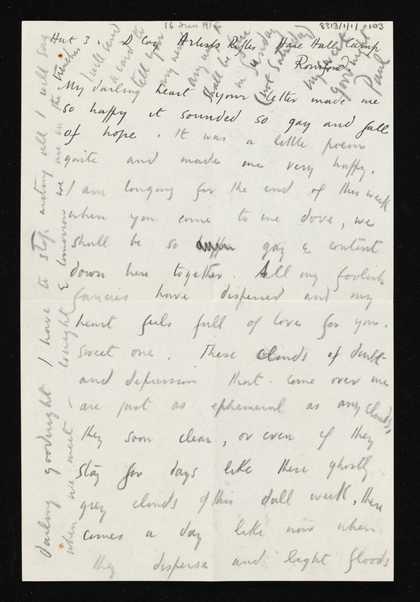 16 Jun 1916
8313/1/1/103
Hut 3. D Coy Artists Rifles Hare Hall Camp
Romford
My darling heart your letter made me
so happy it sounded so gay and full
of hope. It was a little poem
quite and made me very happy.
I am longing for the end of this week
when you come to me dove, we
shall be so gay & content
down here together. All my foolish
fancies have dispersed and my
heart feels full of love for you.
sweet one. These clouds of doubt
and depression that come over me
are just as ephemeral as any clouds,
they soon clear, or even if they
stay for days like these ghostly
grey clouds of this dull week, there
comes a day like now when
they disperse and light floods
darling goodnight I have to stop writing all I will say
when we meet - tonight & tomorrow we are in the trenches
I will send
a card to
tell you
my
any
shall be
on Sunday
(not Saturday)
my sweet
goodnight
Paul